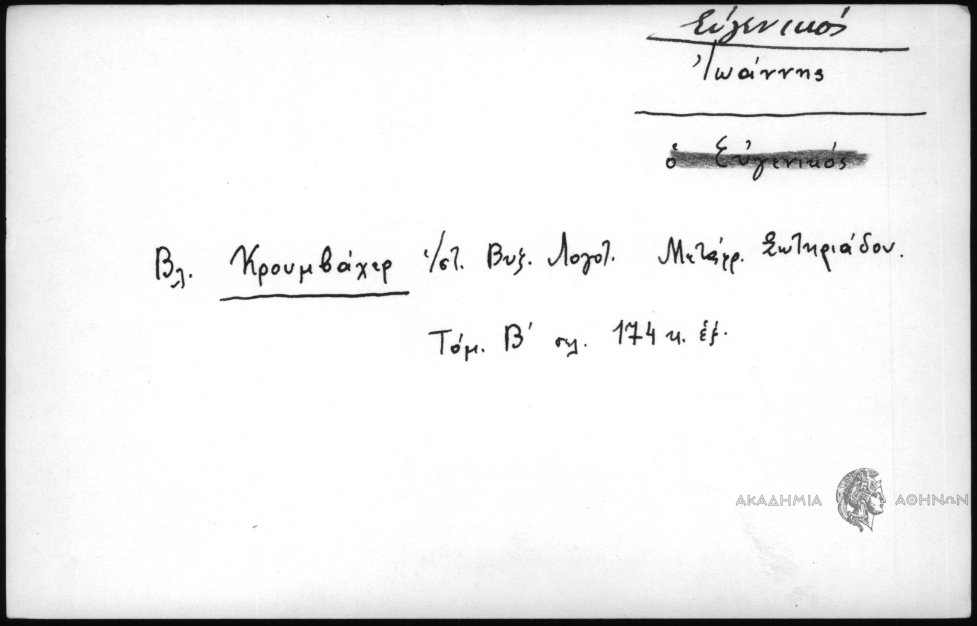 Εὐγενικός
Ἰωάννης
ὁ Εὐγενικός
Βλ. Κρουμβάχερ Ἱστ. Βυζ. Λογοτ. Μετάφρ. Σωτηριάδου.
Τόμ. Β' σελ. 174 κ. ἑξ.
ΑΚΑΔΗΜΙΑ ΑΘΗΝΩΝ